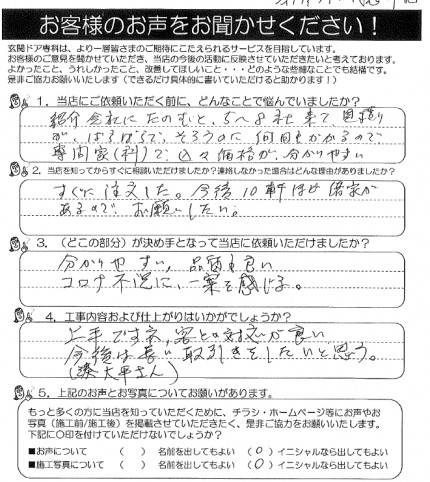 お客様のお声をお聞かせください！
玄関ドア専科は、より一層皆さまのご期待にこたえられるサービスを目指しています。
お客様のご意見を聞かせていただき、当店の今後の活動に反映させていただきたいと考えております。
よかったこと、うれしかったこと、改善してほしいこと・・・どのような些細なことでも結構です。
是非ご協力お願いいたします（できるだけ具体的に書いていただけると助かります！）
１．当店にご依頼いただく前に、どんなことで悩んでいましたか？
紹介会社にたのむと、5〜8社来て、見積り
が、ばらばらで、そろうのに何日もかかるので
専門家（科）で 価格が、分かりやすい
２．当店を知ってからすぐに相談いただけましたか？連絡しなかった場合はどんな理由がありましたか？
すぐに注文した。今後10軒ほど借家が
あるので、お願いしたい。
３．（どこの部分）が決め手となって当店に依頼いただけましたか？
分かりやすい、品質も良い
コロナ不況に、一案を感じる。
４．工事内容および仕上がりはいかがでしょうか？
上手ですネ、客との対応が良い
今後は長い取引きをしたいと思う。
（大平さん）
５．上記のお声とお写真についてお願いがあります。
もっと多くの方に当店を知っていただくために、チラシ・ホームページ等にお声やお
写真（施工前/施工後）を掲載させていただきたく、是非ご協力をお願いいたします。
下記に○印を付けていただけないでしょうか？
■お声について （ ） 名前を出してもよい （○）イニシャルなら出してもよい
■施工写真について （ ） 名前を出してもよい （○）イニシャルなら出してもよい